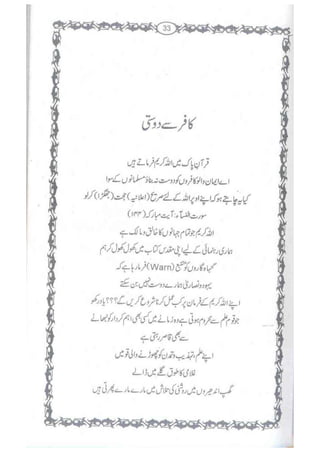 33
کافر سے دوستی
قرآن پاک میں اللہ کریم فرماتے ہیں
اے ایمان والو کافروں کو دوست نہ بناؤ مسلمانوں کے سوا
کیا یہ چاہتے ہو کہ اپنے اوپر اللہ کے لئے صریح (اعلانیہ) حجت (جھگڑا) کر لو
سورت النساء، آیت مبارکہ (۱۴۴)
اللہ کریم جو تمام جہانوں کا خالق و مالک ہے
ہماری رہنمائی کے لیے اپنی مقدس کتاب میں کھول کھول کر ہم
گناہ گاروں کو تنبیح (Warn) فرما رہا ہے کہ
یہود و نصاریٰ ہمارے دوست نہیں بن سکتے
اپنے اللہ کریم کے فرمان پر کب عمل کرنا شروع کریں گے؟؟؟ یاد رکھو
جو قوم علم سے محروم ہوتی ہے وہ زمانے میں کسی بھی اہم کردار کو نبھانے
سے بھی قاصر رہتی ہے
اپنے علم، تہذیب و تمدن کو چھوڑنے والی قومیں
غلامی کا طوق گلے میں ڈالے
گھپ اندھیروں میں روشنی کی تلاش میں مارے مارے پھرتی ہیں